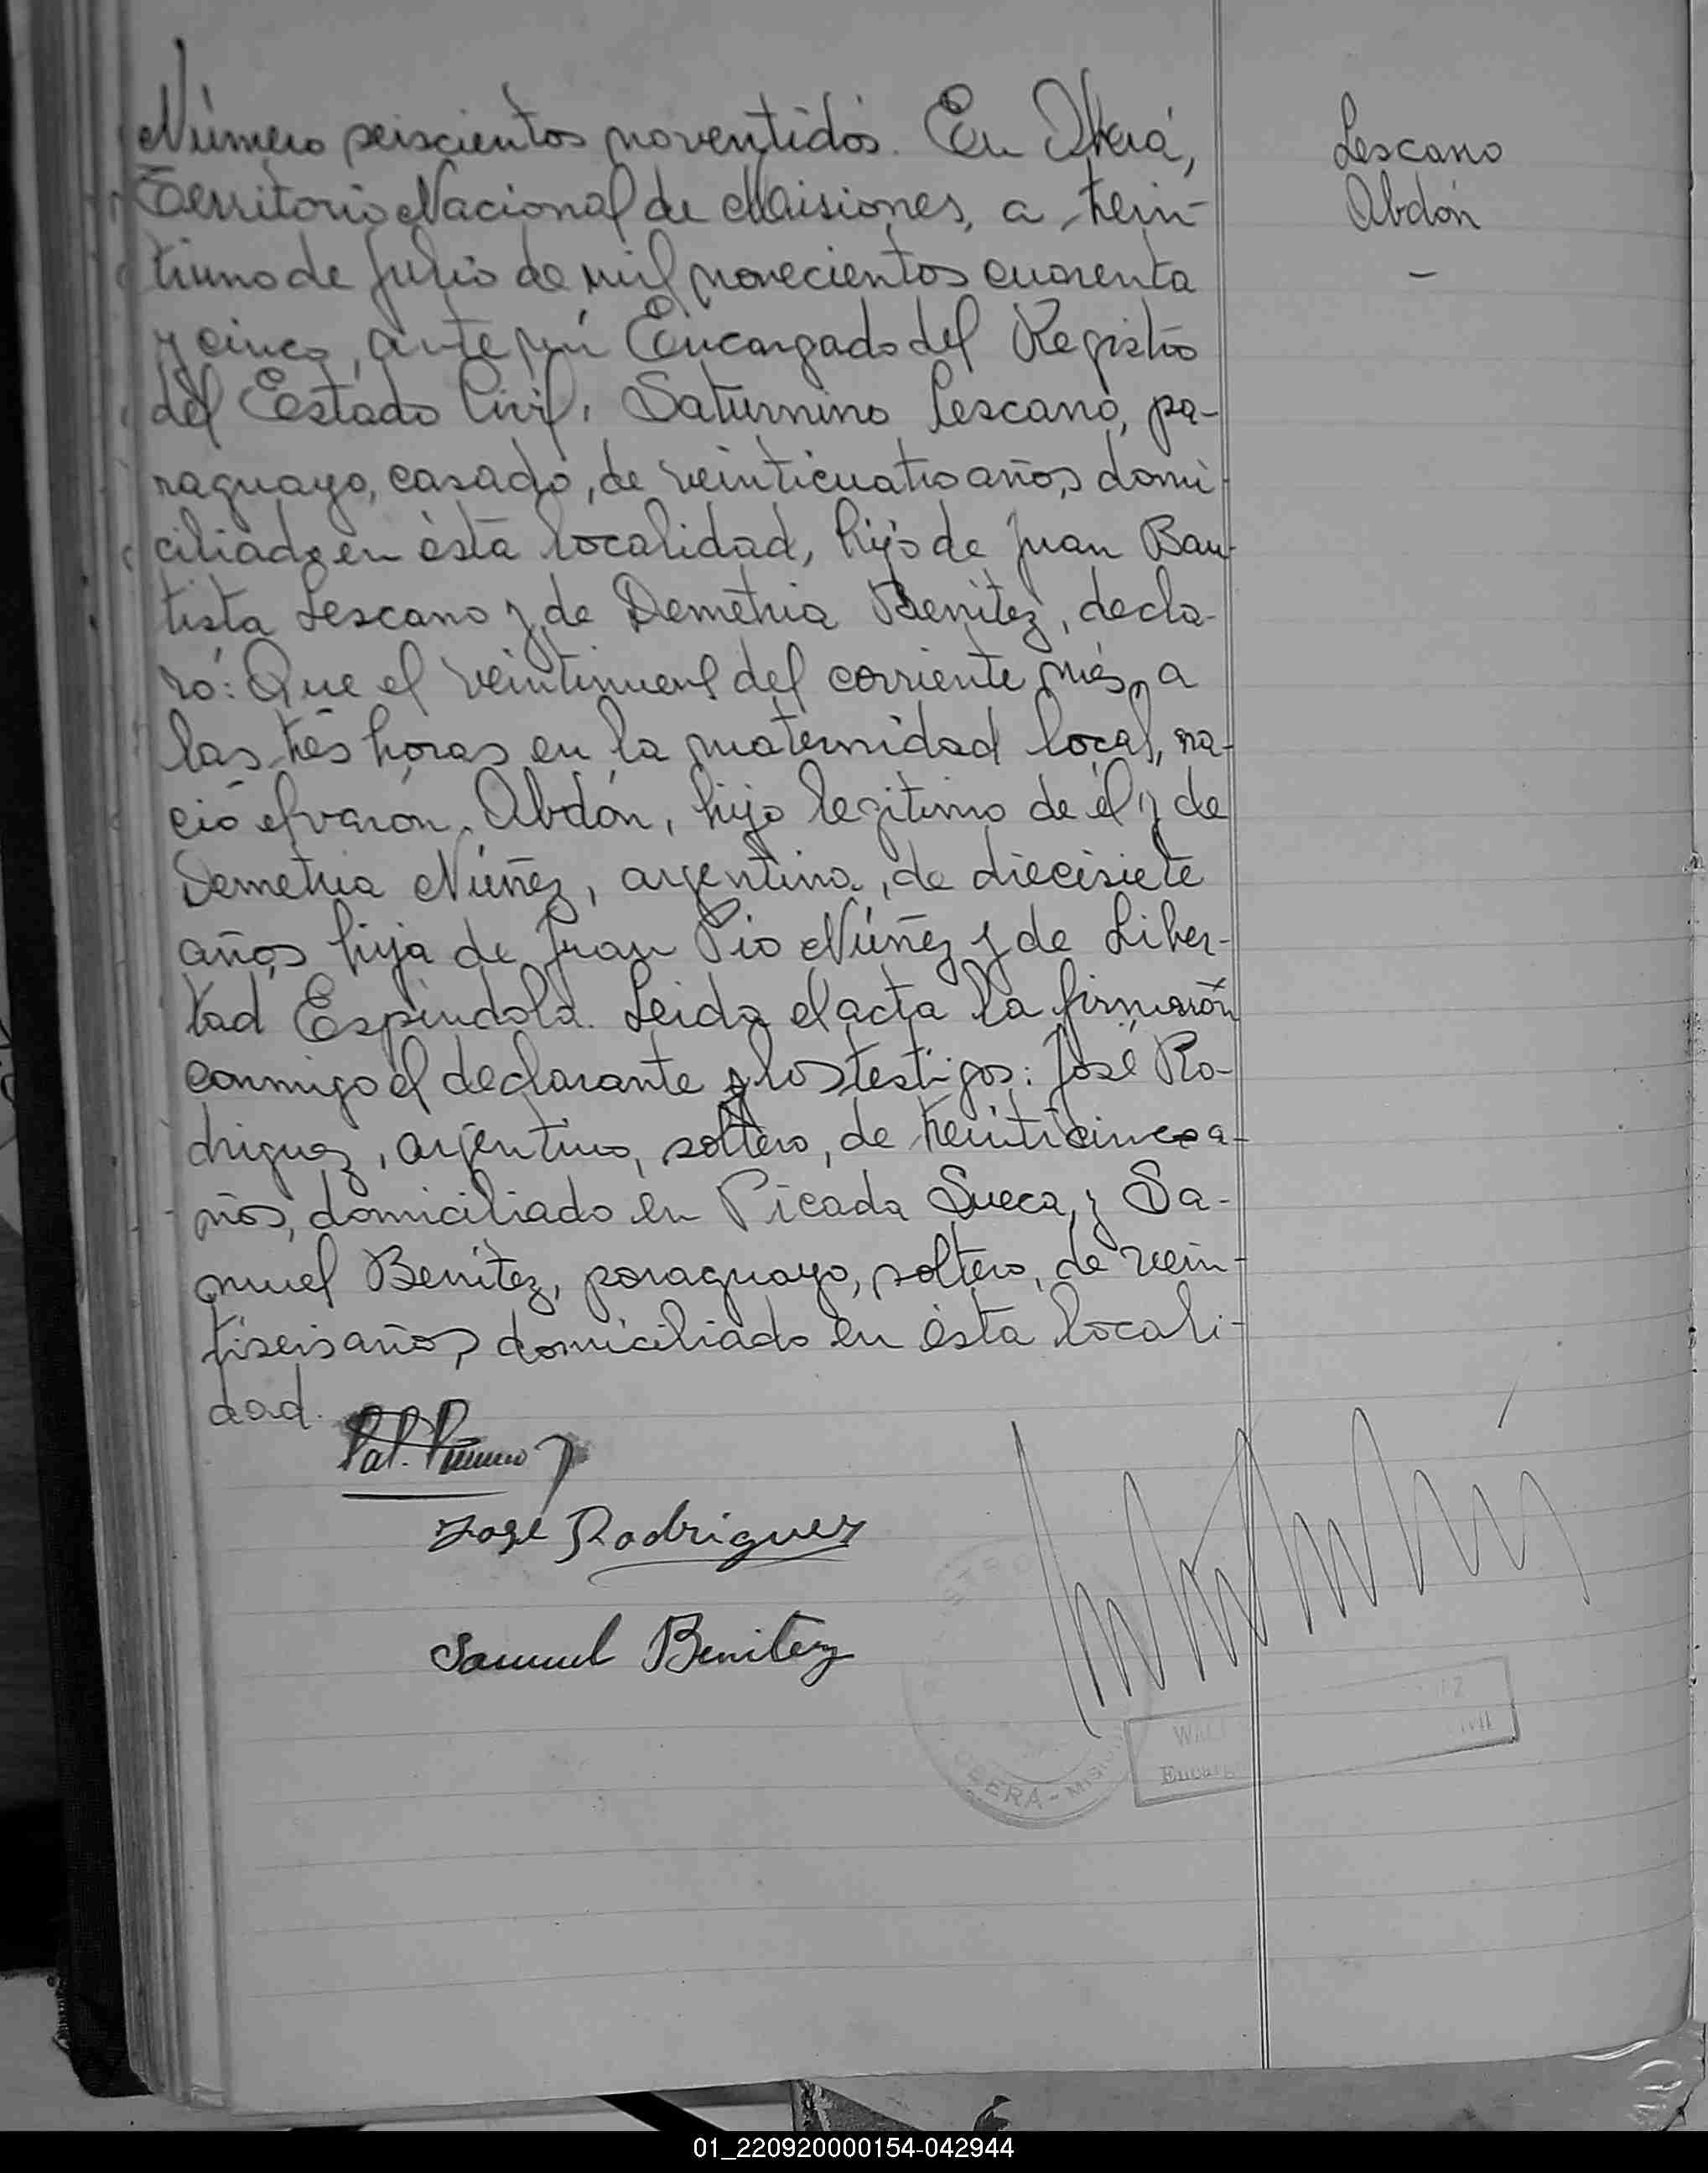 Número seiscientos noventidós. En Oberá,
Lescano
Territorio Nacional de Misiones, a trein-
Abdón
tiuno de Julio de mil novecientos cuarenta
y cinco, ante mí Encargado del Registro
del Estado Civil, Saturnino Lescano, pa-
raguayo, casado, de veinticuatro años, domi-
ciliado en ésta localidad, hijo de Juan Bau-
tista Lescano y de Demetria Benitez, decla-
ró: Que el veintinueve del corriente més, a
las trés horas en la maternidad local, na-
ció el varón, Abdón, hijo legitimo de él y de
Demetria Núñez, argentina, de diecisiete
años hija de Juan Pio Núñez y de Liber-
tad Espindola. Leida el acta la firmarón
conmigo el declarante y los testigos: José Ro-
driguez, argentino, soltero, de treinticinco a-
ños, domiciliado en Picada Sueca, y Sa-
muel Benitez, paraguayo, soltero, de vein-
tiseis años, domiciliado en ésta locali-
dad.
José Rodriguez
Samuel Benitez
OBERA - MISIONES
01_220920000154-042944